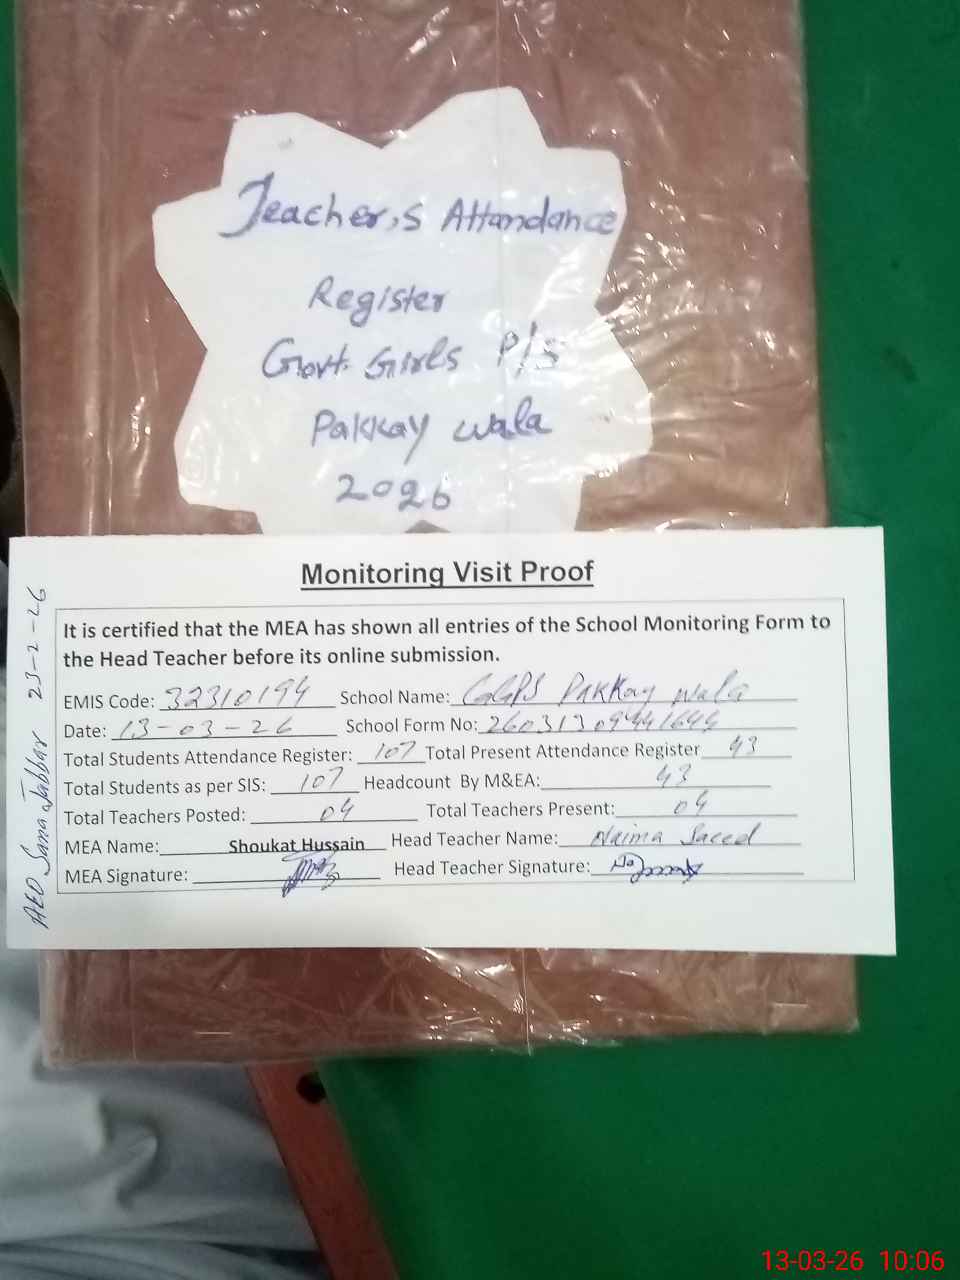 Teacher,s Attandance
Register
Govt. Girls P/S
Pakkay wala
2026
Monitoring Visit Proof
It is certified that the MEA has shown all entries of the School Monitoring Form to
the Head Teacher before its online submission.
EMIS Code: 32310194 School Name: GGPS Pakkay wala
Date: 13-03-26 School Form No:
Total Students Attendance Register: 107 Total Present Attendance Register 43
Total Students as per SIS: 107 Headcount By M&EA: 43
Total Teachers Posted: 04 Total Teachers Present: 04
MEA Name: Shoukat Hussain Head Teacher Name: Naima Saeed
MEA Signature: Head Teacher Signature:
AEO Sana Jabbar 23-2-26
13-03-26 10:06